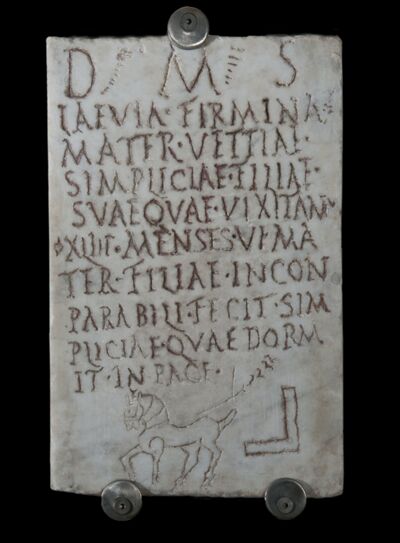 D M S
LAEVIA·FIRMINA
MATER·VETTIAE·
SIMPLICIAE·FILIAE·
SVAE QVAE·VIXIT AN·
XIIII·MENSES·VI·MA
TER·FILIAE·INCON
PARABILI·FECIT·SIM
PLICIAE·QVAE DORM
IT·IN PACE·